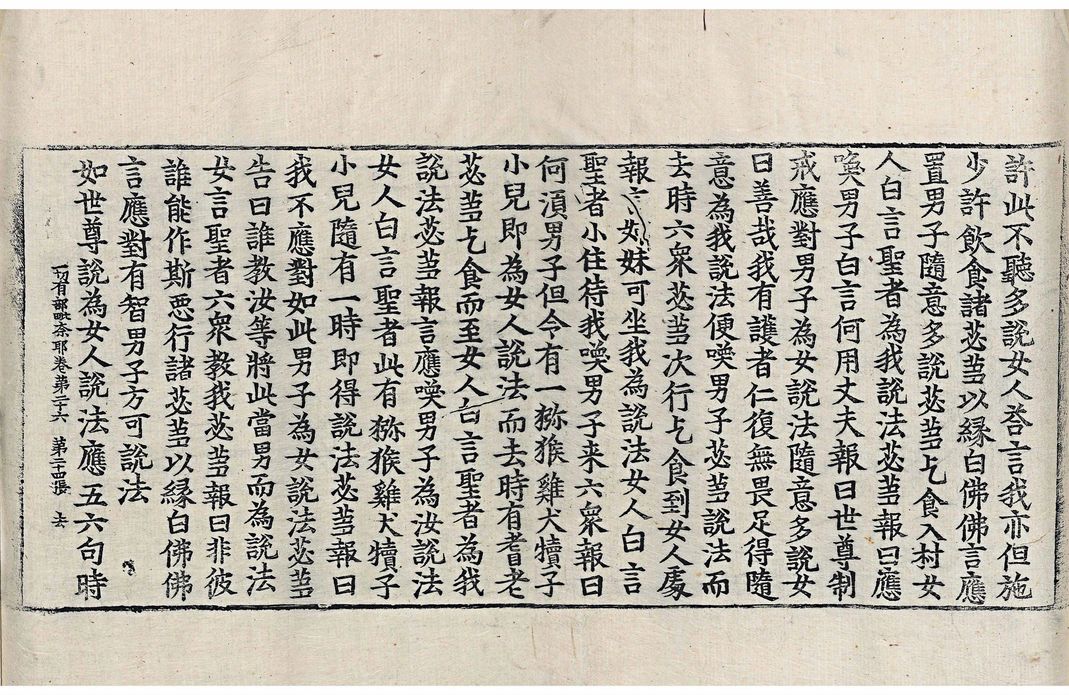 許此不聽多說女人荅言我亦但施
少許飲食諸苾芻以緣白佛佛言應
置男子隨意多說苾芻乞食入村女
人白言聖者為我說法苾芻報曰應
喚男子白言何用丈夫報曰世尊制
戒應對男子為女說法隨意多說女
曰善哉我有護者仁復無畏足得隨
意為我說法便喚男子苾芻說法而
去時六衆苾芻次行乞食到女人處
報言姊妹可坐我為說法女人白言
聖者小住待我喚男子来六衆報曰
何湏男子但令有一猕猴雞犬犢子
小兒即為女人說法而去時有耆老
苾芻乞食而至女人白言聖者為我
說法苾芻報言應喚男子為汝說法
女人白言聖者此有猕猴雞犬犢子
小兒隨有一時即得說法苾芻報曰
我不應對如此男子為女說法苾芻
告曰誰教汝等將此當男而為說法
女言聖者六衆教我苾芻報曰非彼
誰能作斯惡行諸苾芻以緣白佛佛
言應對有智男子方可說法
一切有部毗奈耶卷第二十六 第二十四張 去
如世尊說為女人說法應五六句時